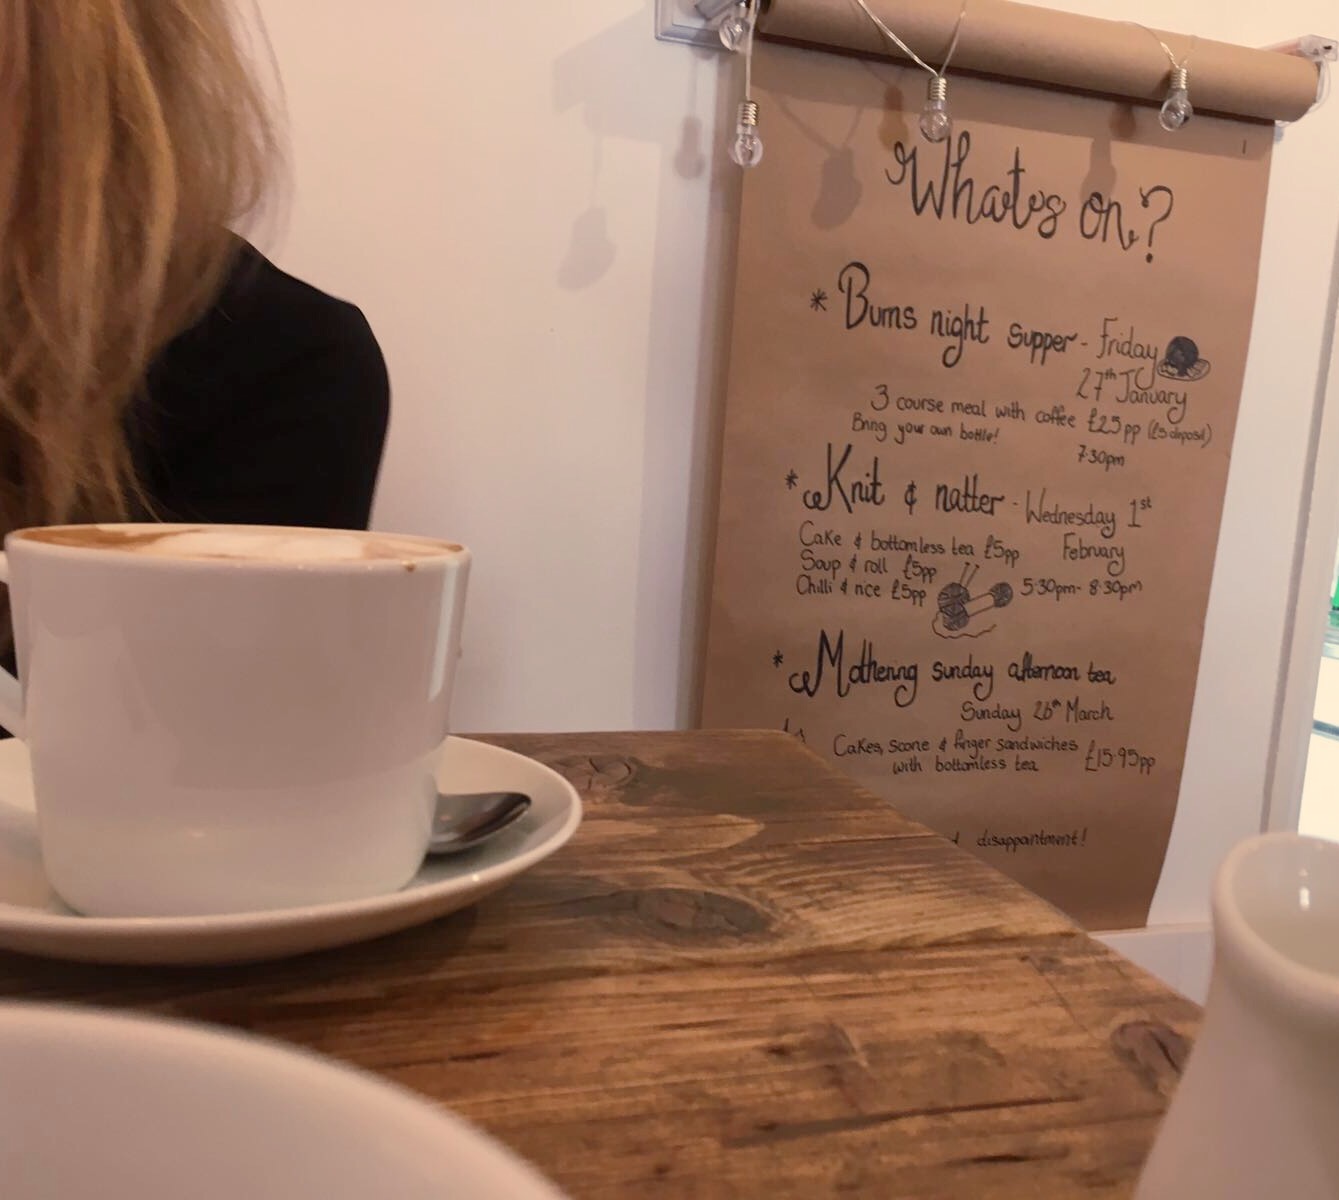 What's on?
* Burns night supper - Friday
27th January
3 course meal with coffee £25pp (£5 deposit)
Bring your own bottle!
7·30pm
* Knit & natter - Wednesday 1st
February
Cake & bottomless tea £5pp
Soup & roll £5pp
Chilli & rice £5pp
5·30pm - 8·30pm
* Mothering sunday afternoon tea
Sunday 26th March
Cakes, scone & finger sandwiches
with bottomless tea
£15·95pp
disappointment!